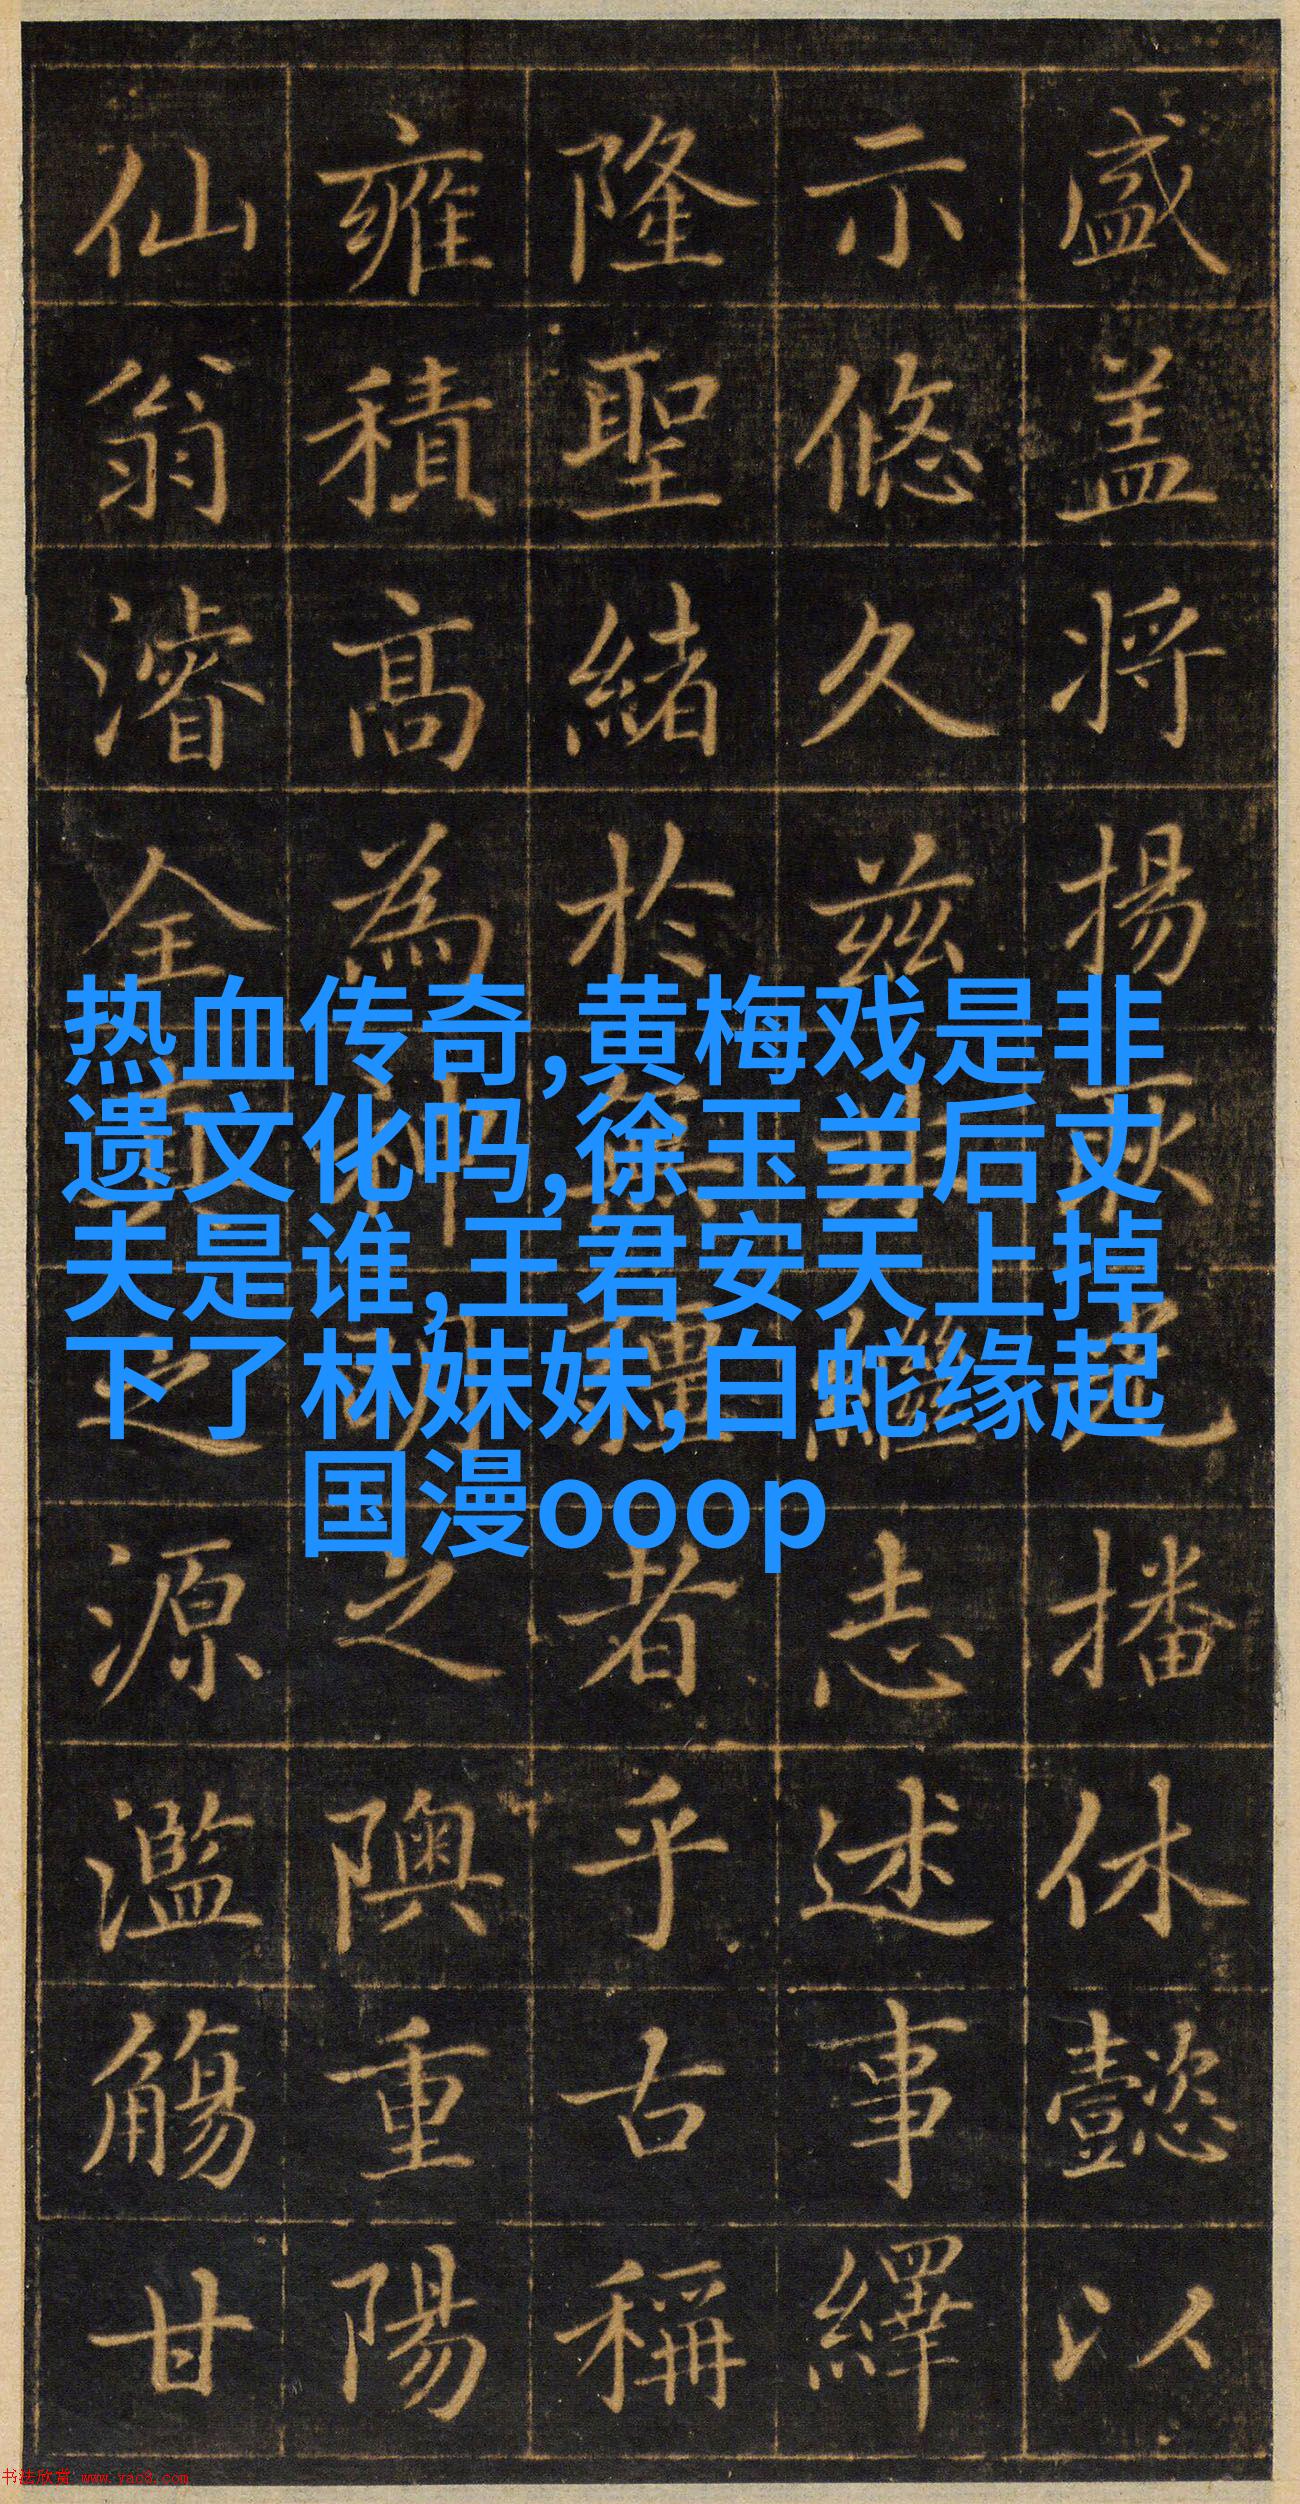 盛盖将揚耿光播休懿以
示悠久兹繼志述事繹
隆聖緒於無疆者乎古稱
雍積高為神明之隩重陽
仙翁濬全真之源濫觴甘
热血传奇,黄梅戏是非
遗文化吗,徐玉兰后丈
夫是谁,王君安天上掉
下了林妹妹,白蛇缘起
国漫ooop
书法欣赏 www.yac8.com